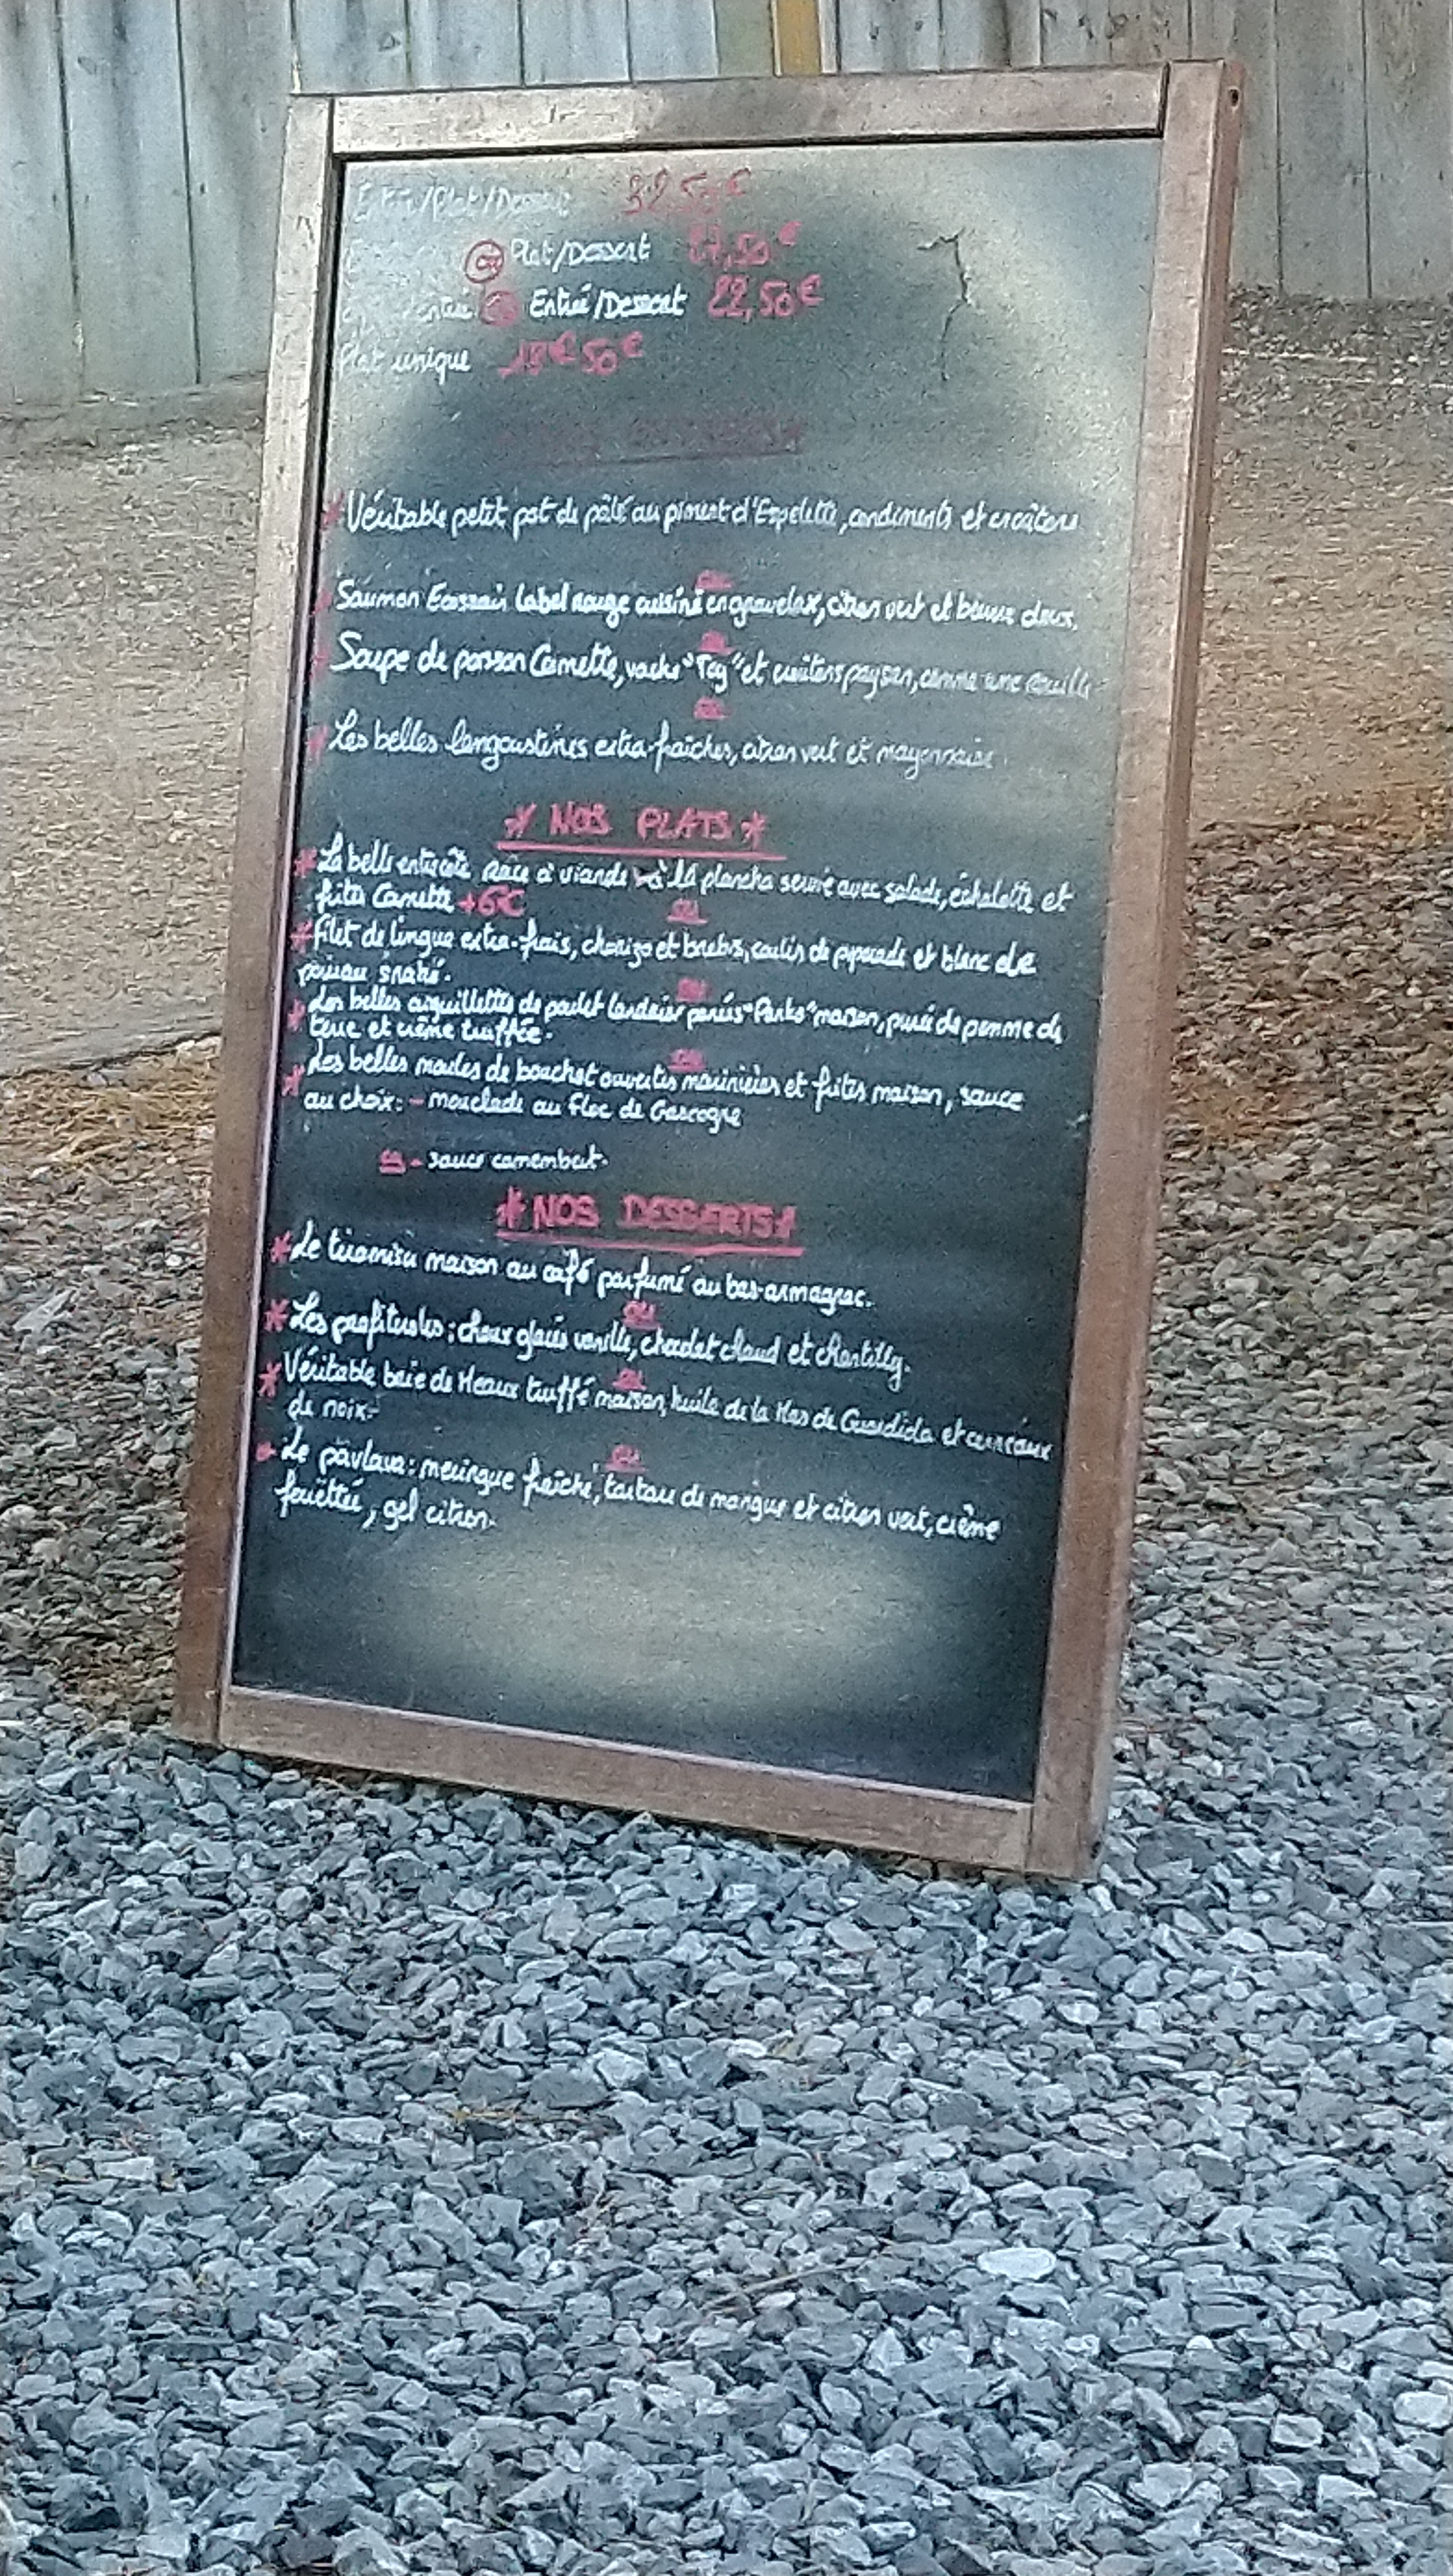 Entrée/Plat/Dessert 32,50€
ou Plat/Dessert 27,50€
entrée Entrée/Dessert 22,50€
Plat unique 18€50€
* Véritable petit pot de pâté au piment d'Espelette, condiments et croûtons
ou
Saumon Ecossais Label rouge cuisiné en gravelax, citron vert et beurre doux.
ou
Soupe de poisson Camette, vache "Toy" et croûtons paysan, comme une rouille
ou
* Les belles langoustines extra-fraîches, citron vert et mayonnaise.
* NOS PLATS *
* La belle entrecôte race à viande à la plancha servie avec salade, échalotte et
frites Camette +6€
ou
* Filet de lingue extra-frais, chorizo et brebis, coulis de piperade et blanc de
poireau snaké.
ou
* Les belles aiguillettes de poulet landais panés "Panko" maison, purée de pomme de
terre et crème truffée.
ou
* Les belles moules de bouchot ouvertes marinières et frites maison, sauce
au choix: - mouclade au Floc de Gascogne
ou - sauce camembert.
* NOS DESSERTS *
* Le tiramisu maison au café parfumé au bas-armagnac.
ou
* Les profiteroles: choux glacés vanille, chocolat chaud et chantilly.
ou
* Véritable brie de Meaux truffé maison, huile de la Mas de et cerneaux
de noix-
ou
Le pavlava: meringue fraîche, tartare de mangue et citron vert, crème
fouëttée, gel citron.